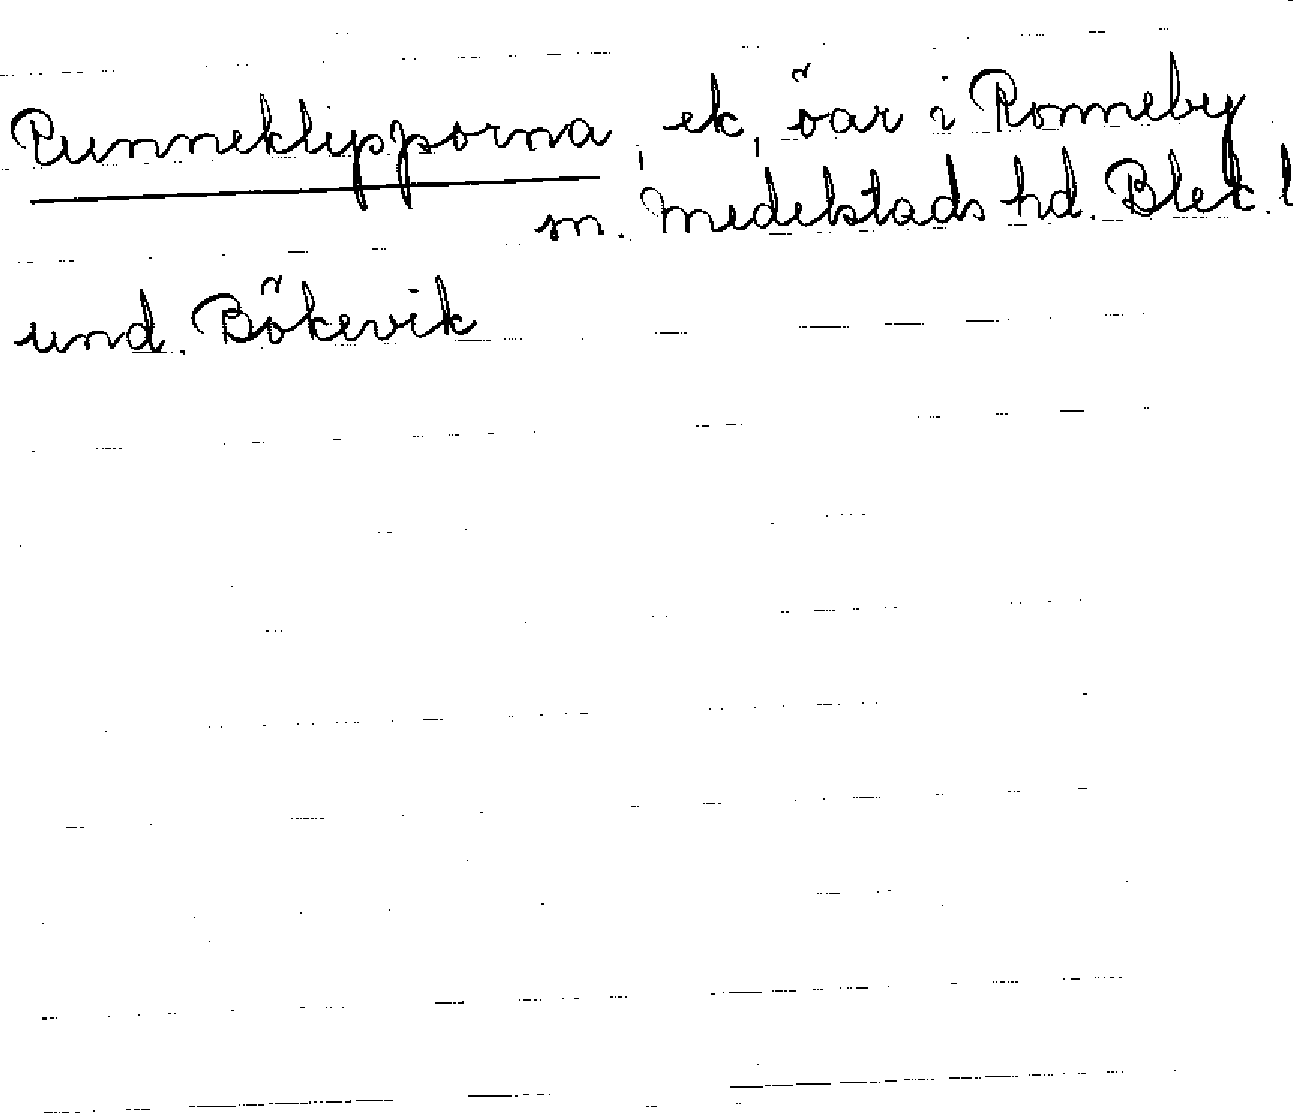 Runneklipporna, ek, öar i Ronneby
sn. Medelstads hd. Blek. l
und. Bökevik